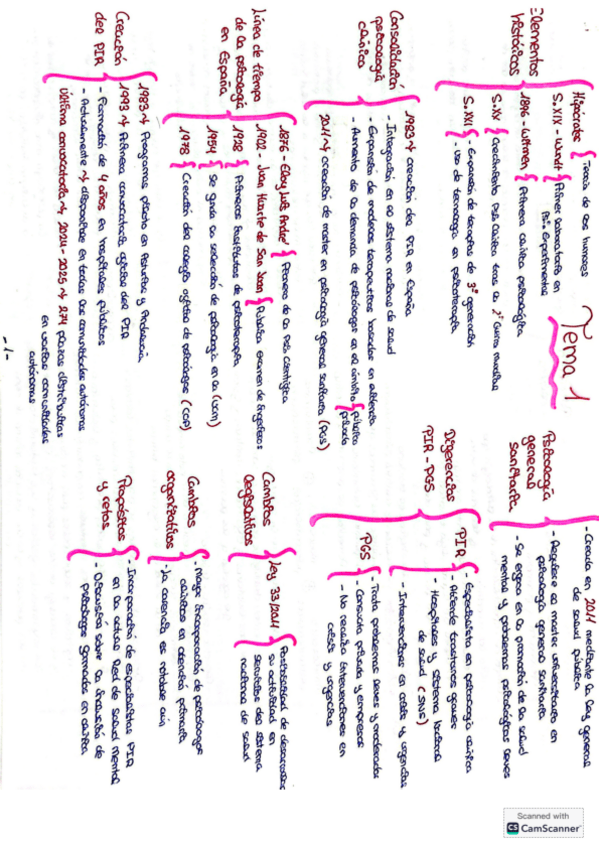 Tema 1
Elementos históricos
Hipócrates Teoría de los humores
S. XIX - Wundt Primer laboratorio en
Psic. Experimental
1896 - Witmer Primera clínica psicológica
S. XX Crecimiento Psic. Clínica tras la 2ª Guerra mundial
S. XXI - Expansión de terapias de 3ª generación
- Uso de tecnología en psicoterapia
Consolidación psicología clínica
1983 → creación del PIR en España
- Integración en el sistema nacional de salud
- Expansión de modelos terapéuticos basados en evidencia
- Aumento de la demanda de psicólogos en el ámbito público
privado
2011 → creación de master en psicología general sanitaria (PGS)
Línea de tiempo de la psicología en España
1876 - Eloy Luis André Pionero de la Psic. Científica
1902 - Juan Huarte de San Juan Publica examen de Ingenios
1928 Primeros Institutos de psicoterapia
1954 Se funda la sección de psicología en la (UCM)
1978 Creación del colegio oficial de psicólogos (COP)
Creación del PIR
1983 → Programas piloto en Asturias y Andalucía
1993 → Primera convocatoria oficial del PIR
- Formación de 4 años en hospitales públicos
- Actualmente → disponible en todas las comunidades autónomas
Última convocatoria → 2024-2025 → 274 plazas distribuidas
en varias comunidades
autónomas
-1-
Psicología general sanitaria
- Creada en 2011 mediante la ley general
de salud pública
- Requiere el master universitario en
psicología general sanitaria
- Se enfoca en la promoción de la salud
mental y problemas psicológicos leves
Diferencias PIR - PGS
PIR
- Especialista en psicología clínica
- Atiende trastornos graves
- Hospitales y sistema nacional
de salud (SNS)
- Intervenciones en crisis y urgencias
PGS
- Trata problemas leves y moderados
- Consulta privada y empresas
- No realiza intervenciones en
crisis y urgencias
Cambios legislativos
Ley 33/2011
Posibilidad de desarrollar
su actividad en
servicios del sistema
nacional de salud
Cambios organizativos
- Mayor incorporación de psicólogos
clínicos en atención primaria
- La carencia es notable aún
Propósitos y retos
- Incorporación de especialistas PIR
en la actual Red de salud mental
- Discusión sobre la inclusión de
psicólogos formados en clínica
Scanned with
CS CamScanner